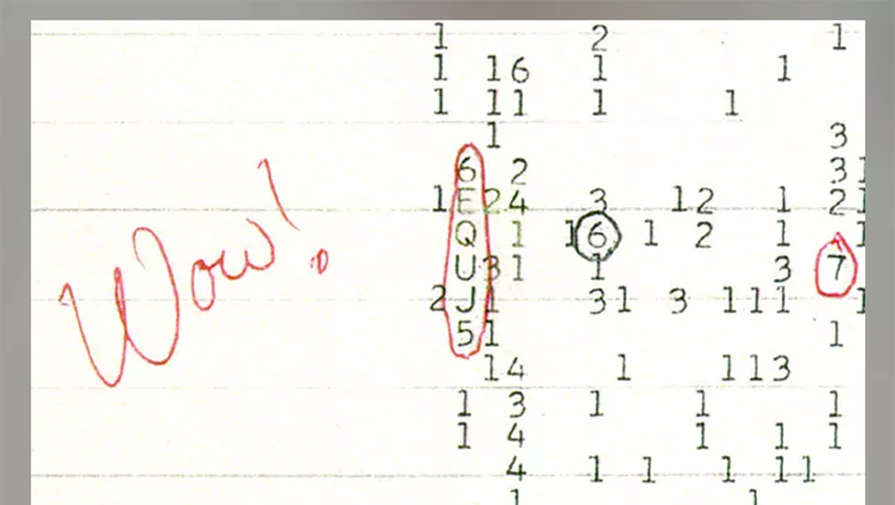 1 2 1
1 16 1 1
1 11 1 1
1 3
6 2 31
1E24 3 12 1 21
Q 1 16 1 2 1 1
U31 1 3 7
2J1 31 3 111 1
51 1
14 1 113
1 3 1 1 1
1 4 1 1 1
4 1 1 1 11
1 1
Wow!